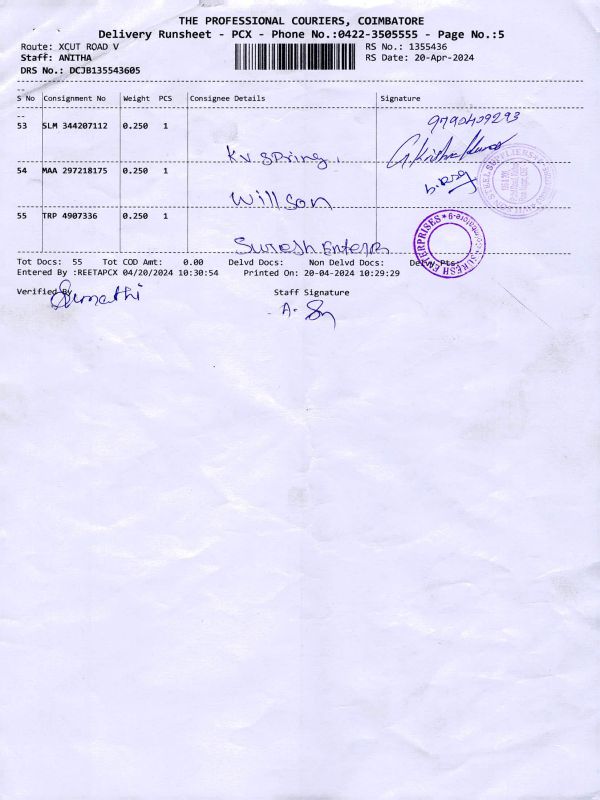 THE PROFESSIONAL COURIERS, COIMBATORE
Delivery Runsheet - PCX - Phone No.:0422-3505555 - Page No.:5
Route: XCUT ROAD V
RS No.: 1355436
Staff: ANITHA
RS Date: 20-Apr-2024
DRS No.: DCJB135543605
S No Consignment No Weight PCS Consignee Details Signature
53 SLM 344207112 0.250 1
9790409293
KV Spring.
54 MAA 297218175 0.250 1
Willson
55 TRP 4907336 0.250 1
SURESH ENTERPRISES * Coimbatore-9 *
Suresh Enterp
Tot Docs: 55 Tot COD Amt: 0.00 Delvd Docs: Non Delvd Docs: Delvd Pts:
Entered By :REETAPCX 04/20/2024 10:30:54 Printed On: 20-04-2024 10:29:29
Verified By
Staff Signature